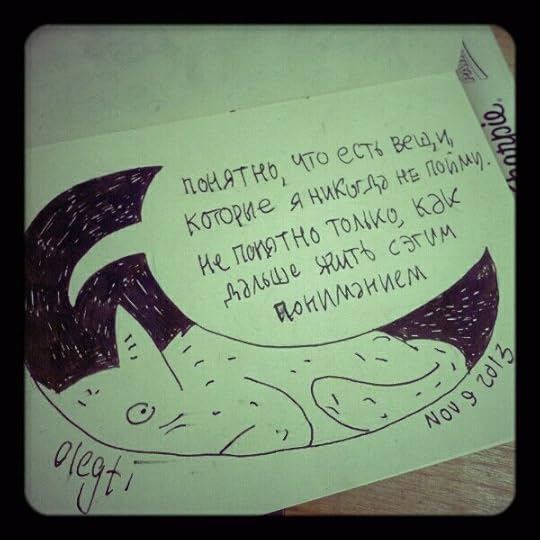 понятно, что есть вещи,
которие я никогда не пойму.
не понятно толко, как
дальше жить с этим
пониманием
NOV 9 2013
olegti
sharpie.